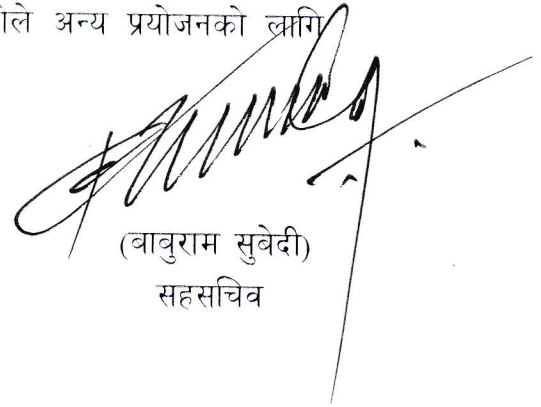 ले अन्य प्रयोजनको लागि
(बाबुराम सुवेदी)
सहसचिव